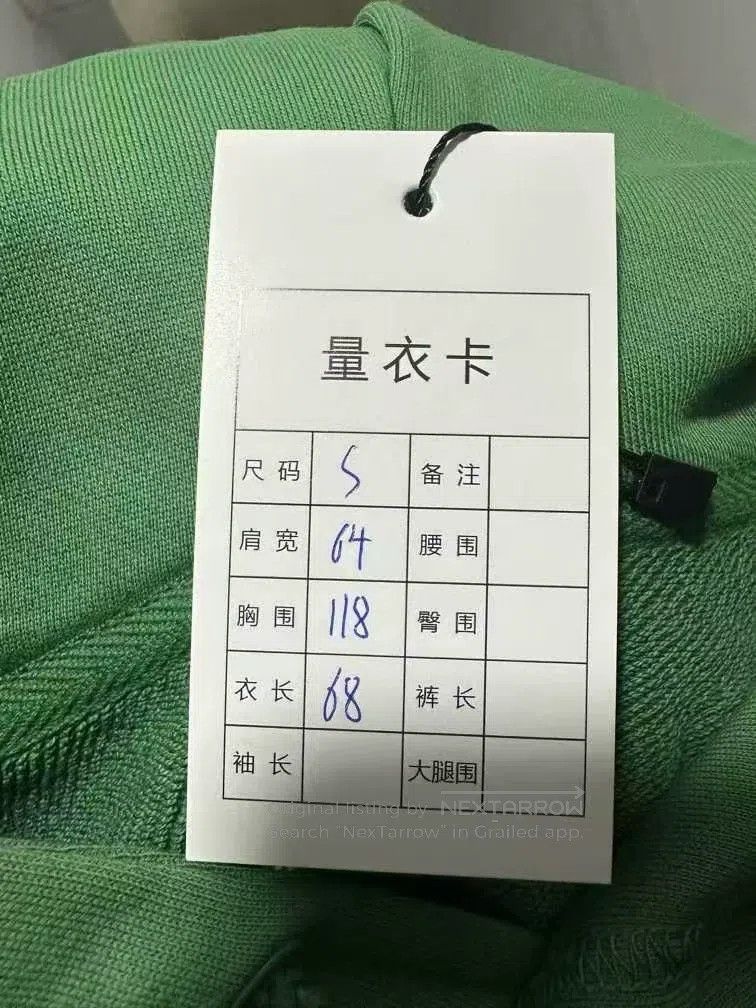 量衣卡
尺码 S 备注
肩宽 64 腰围
胸围 118 臀围
衣长 68 裤长
袖长 大腿围
Original listing by NEXTARROW
Search "NexTarrow" in Grailed app.